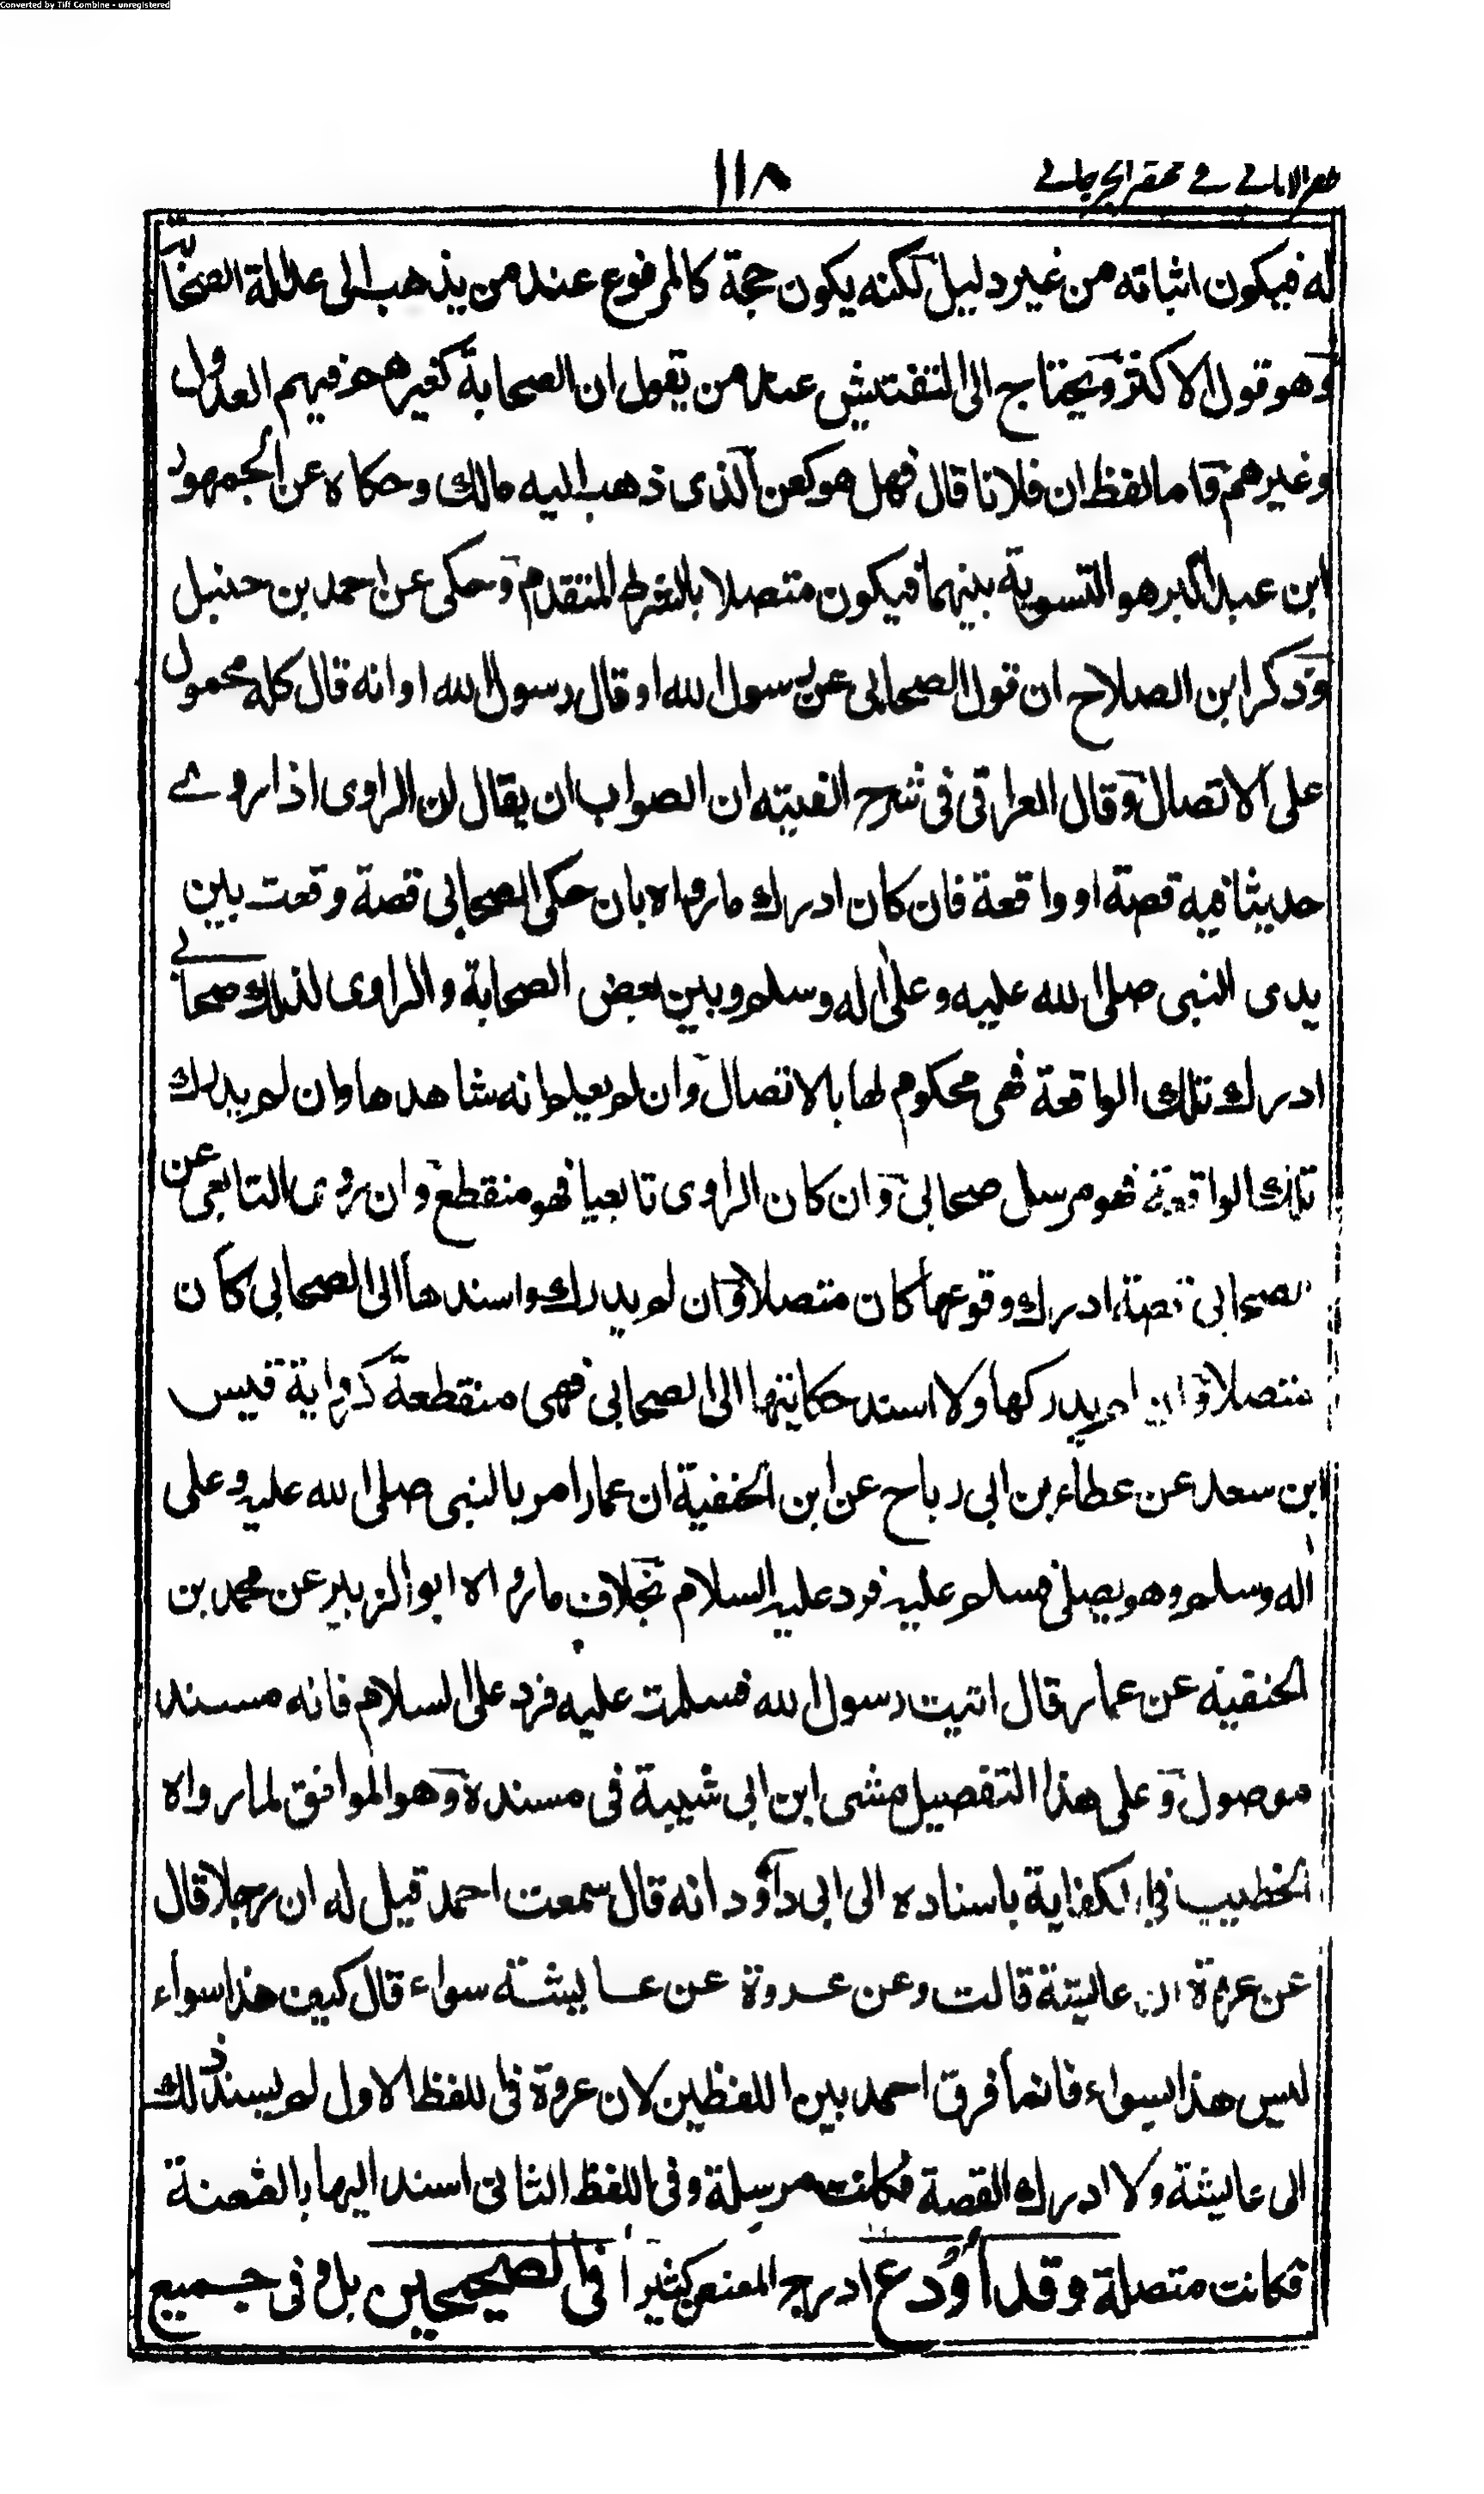 Converted by Tiff Combine - unregistered
ظفر الاماني في مختصر الجرجاني
١١٨
له فيكون اثباته من غير دليل لكنه يكون حجة كالمرفوع عند من يذهب الى عدالة الصحابة
وهو قول الاكثر ويحتاج الى التفتيش عند من يقول ان الصحابة كغيرهم فيهم العدول
وغيرهم واما لفظ ان فلانا قال فهل هو كعن الذى ذهب اليه مالك وحكاه عن الجمهور
ابن عبد البر هو التسوية بينهما فيكون متصلا بالشرط المتقدم وحكى عن احمد بن حنبل
وذكر ابن الصلاح ان قول الصحابى عن رسول الله او قال رسول الله او انه قال كله محمول
على الاتصال وقال العراقى فى شرح الفيته ان الصواب ان يقال ان الراوى اذا روى
حديثا فيه قصة او واقعة فان كان ادرك ما رواه بان حكى الصحابى قصة وقعت بين
يدى النبى صلى الله عليه وعلى اله وسلم وبين بعض الصحابة والراوى لذلك صحابى
ادرك تلك الواقعة فهى محكوم لها بالاتصال وان لم يعلم انه شاهدها وان لم يدرك
تلك الواقعة فهو مرسل صحابى وان كان الراوى تابعيا فهو منقطع وان روى التابعى عن
الصحابى قصة ادرك وقوعها كان متصلا وان لم يدرك واسندها الى الصحابى كان
متصلا وان لم يدركها ولا اسند حكايتها الى الصحابى فهى منقطعة كرواية قيس
ابن سعد عن عطاء بن ابى رباح عن ابن الحنفية ان عمارا مر بالنبى صلى الله عليه وعلى
اله وسلم وهو يصلى فسلم عليه فرد عليه السلام بخلاف ما رواه ابو الزبير عن محمد بن
الحنفية عن عمار قال اتيت رسول الله فسلمت عليه فرد على السلام فانه مسند
موصول وعلى هذا التفصيل مشى ابن ابى شيبة فى مسنده وهو الموافق لما رواه
الخطيب فى الكفاية باسناده الى ابى داود انه قال سمعت احمد قيل له ان رجلا قال
عن عروة ان عائشة قالت وعن عروة عن عائشة سواء قال كيف هذا سواء
ليس هذا بسواء فانما فرق احمد بين اللفظين لان عروة فى اللفظ الاول لم يسند ذلك
الى عائشة ولا ادرك القصة فكانت مرسلة وفى اللفظ الثانى اسند اليها بالعنعنة
فكانت متصلة وقد اودع ادرج المعنعن كثيرا فى الصحيحين بل وفى جميع